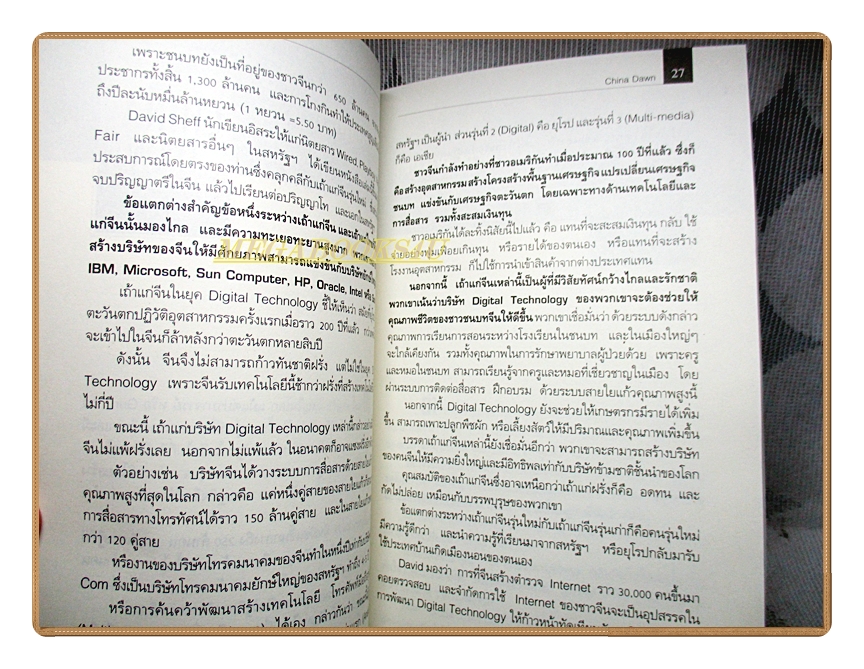 เพราะชนบทยังเป็นที่อยู่ของชาวจีนกว่า 650 ล้านคน
ประชากรทั้งสิ้น 1,300 ล้านคน และการโกงกินทำให้ประเทศ
ถึงปีละนับหมื่นล้านหยวน (1 หยวน =5.50 บาท)
David Sheff นักเขียนอิสระให้แก่นิตยสาร Wired,
Fair และนิตยสารอื่นๆ ในสหรัฐฯ ได้เขียนหนังสือ
ประสบการณ์โดยตรงของท่านซึ่งคลุกคลีกับเถ้าแก่จีนรุ่นใหม่
จบปริญญาตรีในจีน แล้วไปเรียนต่อปริญญาโท และเอกใน
ข้อแตกต่างสำคัญข้อหนึ่งระหว่างเถ้าแก่จีน และ
แก่จีนนั้นมองไกล และมีความทะเยอทะยานสูงมาก
สร้างบริษัทของจีนให้มีศักยภาพสามารถแข่งขันกับบริษัท
IBM, Microsoft, Sun Computer, HP, Oracle, Intel
เถ้าแก่จีนในยุค Digital Technology ชี้ให้เห็นว่า
ตะวันตกปฏิวัติอุตสาหกรรมครั้งแรกเมื่อราว 200 ปีที่แล้ว
จะเข้าไปในจีนก็ล้าหลังกว่าตะวันตกหลายสิบปี
ดังนั้น จีนจึงไม่สามารถก้าวทันชาติฝรั่ง แต่ไม่ใช่ในยุค
Technology เพราะจีนรับเทคโนโลยีนี้ช้ากว่าฝรั่งที่สร้าง
ไม่กี่ปี
ขณะนี้ เถ้าแก่บริษัท Digital Technology เหล่านี้กล่าว
จีนไม่แพ้ฝรั่งเลย นอกจากไม่แพ้แล้ว ในอนาคตก็อาจ
ตัวอย่างเช่น บริษัทจีนได้วางระบบการสื่อสารด้วยสาย
คุณภาพสูงที่สุดในโลก กล่าวคือ แค่หนึ่งคู่สายของสายใย
การสื่อสารทางโทรทัศน์ได้ราว 150 ล้านคู่สาย และใน
กว่า 120 คู่สาย
หรืองานของบริษัทโทรคมนาคมของจีนทำในหนึ่งปีเท่ากับ
Com ซึ่งเป็นบริษัทโทรคมนาคมยักษ์ใหญ่ของสหรัฐฯ ทำถึง
หรือการค้นคว้าพัฒนาสร้างเทคโนโลยี
ได้เอง กล่าวกันว่า
MEGABOOKS4U
China Dawn 27
สหรัฐฯ เป็นผู้นำ ส่วนรุ่นที่ 2 (Digital) คือ ยุโรป และรุ่นที่ 3 (Multi-media)
ก็คือ เอเชีย
ชาวจีนกำลังทำอย่างที่ชาวอเมริกันทำเมื่อประมาณ 100 ปีที่แล้ว ซึ่งก็
คือ สร้างอุตสาหกรรม สร้างโครงสร้างพื้นฐานเศรษฐกิจ แปรเปลี่ยนเศรษฐกิจ
ชนบท แข่งขันกับเศรษฐกิจตะวันตก โดยเฉพาะทางด้านเทคโนโลยีและ
การสื่อสาร รวมทั้งสะสมเงินทุน
ชาวอเมริกันได้ละทิ้งนิสัยนี้ไปแล้ว คือ แทนที่จะสะสมเงินทุน กลับ ใช้
จ่ายอย่างฟุ่มเฟือยเกินทุน หรือรายได้ของตนเอง หรือแทนที่จะสร้าง
โรงงานอุตสาหกรรม ก็ไปใช้การนำเข้าสินค้าจากต่างประเทศแทน
นอกจากนี้ เถ้าแก่จีนเหล่านี้เป็นผู้ที่มีวิสัยทัศน์กว้างไกลและรักชาติ
พวกเขาเน้นว่าบริษัท Digital Technology ของพวกเขาจะต้องช่วยให้
คุณภาพชีวิตของชาวชนบทจีนให้ดีขึ้น พวกเขาเชื่อมั่นว่า ด้วยระบบดังกล่าว
คุณภาพการเรียนการสอนระหว่างโรงเรียนในชนบท และในเมืองใหญ่ๆ
จะใกล้เคียงกัน รวมทั้งคุณภาพในการรักษาพยาบาลผู้ป่วยด้วย เพราะครู
และหมอในชนบท สามารถเรียนรู้จากครูและหมอที่เชี่ยวชาญในเมือง โดย
ผ่านระบบการติดต่อสื่อสาร ฝึกอบรม ด้วยระบบสายใยแก้วคุณภาพสูงนี้
นอกจากนี้ Digital Technology ยังจะช่วยให้เกษตรกรมีรายได้เพิ่ม
ขึ้น สามารถเพาะปลูกพืชผัก หรือเลี้ยงสัตว์ให้มีปริมาณและคุณภาพเพิ่มขึ้น
บรรดาเถ้าแก่จีนเหล่านี้ยังเชื่อมั่นอีกว่า พวกเขาจะสามารถสร้างบริษัท
ของคนจีนให้มีความยิ่งใหญ่และมีอิทธิพลเท่ากับบริษัทข้ามชาติชั้นนำของโลก
คุณสมบัติของเถ้าแก่จีนซึ่งอาจเหนือกว่าเถ้าแก่ฝรั่งก็คือ อดทน และ
กัดไม่ปล่อย เหมือนกับบรรพบุรุษของพวกเขา
ข้อแตกต่างระหว่างเถ้าแก่จีนรุ่นใหม่กับเถ้าแก่จีนรุ่นเก่าก็คือคนรุ่นใหม่
มีความรู้ดีกว่า และนำความรู้ที่เรียนมาจากสหรัฐฯ หรือยุโรปกลับมารับ
ใช้ประเทศบ้านเกิดเมืองนอนของตนเอง
David มองว่า การที่จีนสร้างตำรวจ Internet ราว 30,000 คนขึ้นมา
คอยตรวจสอบ และจำกัดการใช้ Internet ของชาวจีนจะเป็นอุปสรรคใน
การพัฒนา Digital Technology ให้ก้าวหน้าทัดเทียม